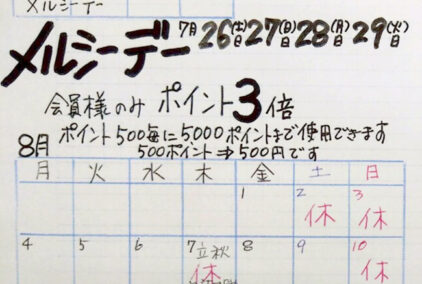 メルシーデー
メルシーデー 7月26日(土)27日(日)28日(月)29日(火)
会員様のみ ポイント3倍
ポイント500毎に5000ポイントまで使用できます
500ポイント⇒500円です
8月
月 火 水 木 金 土 日
1 2 3
休 休
4 5 6 7 立秋 8 9 10
休 休